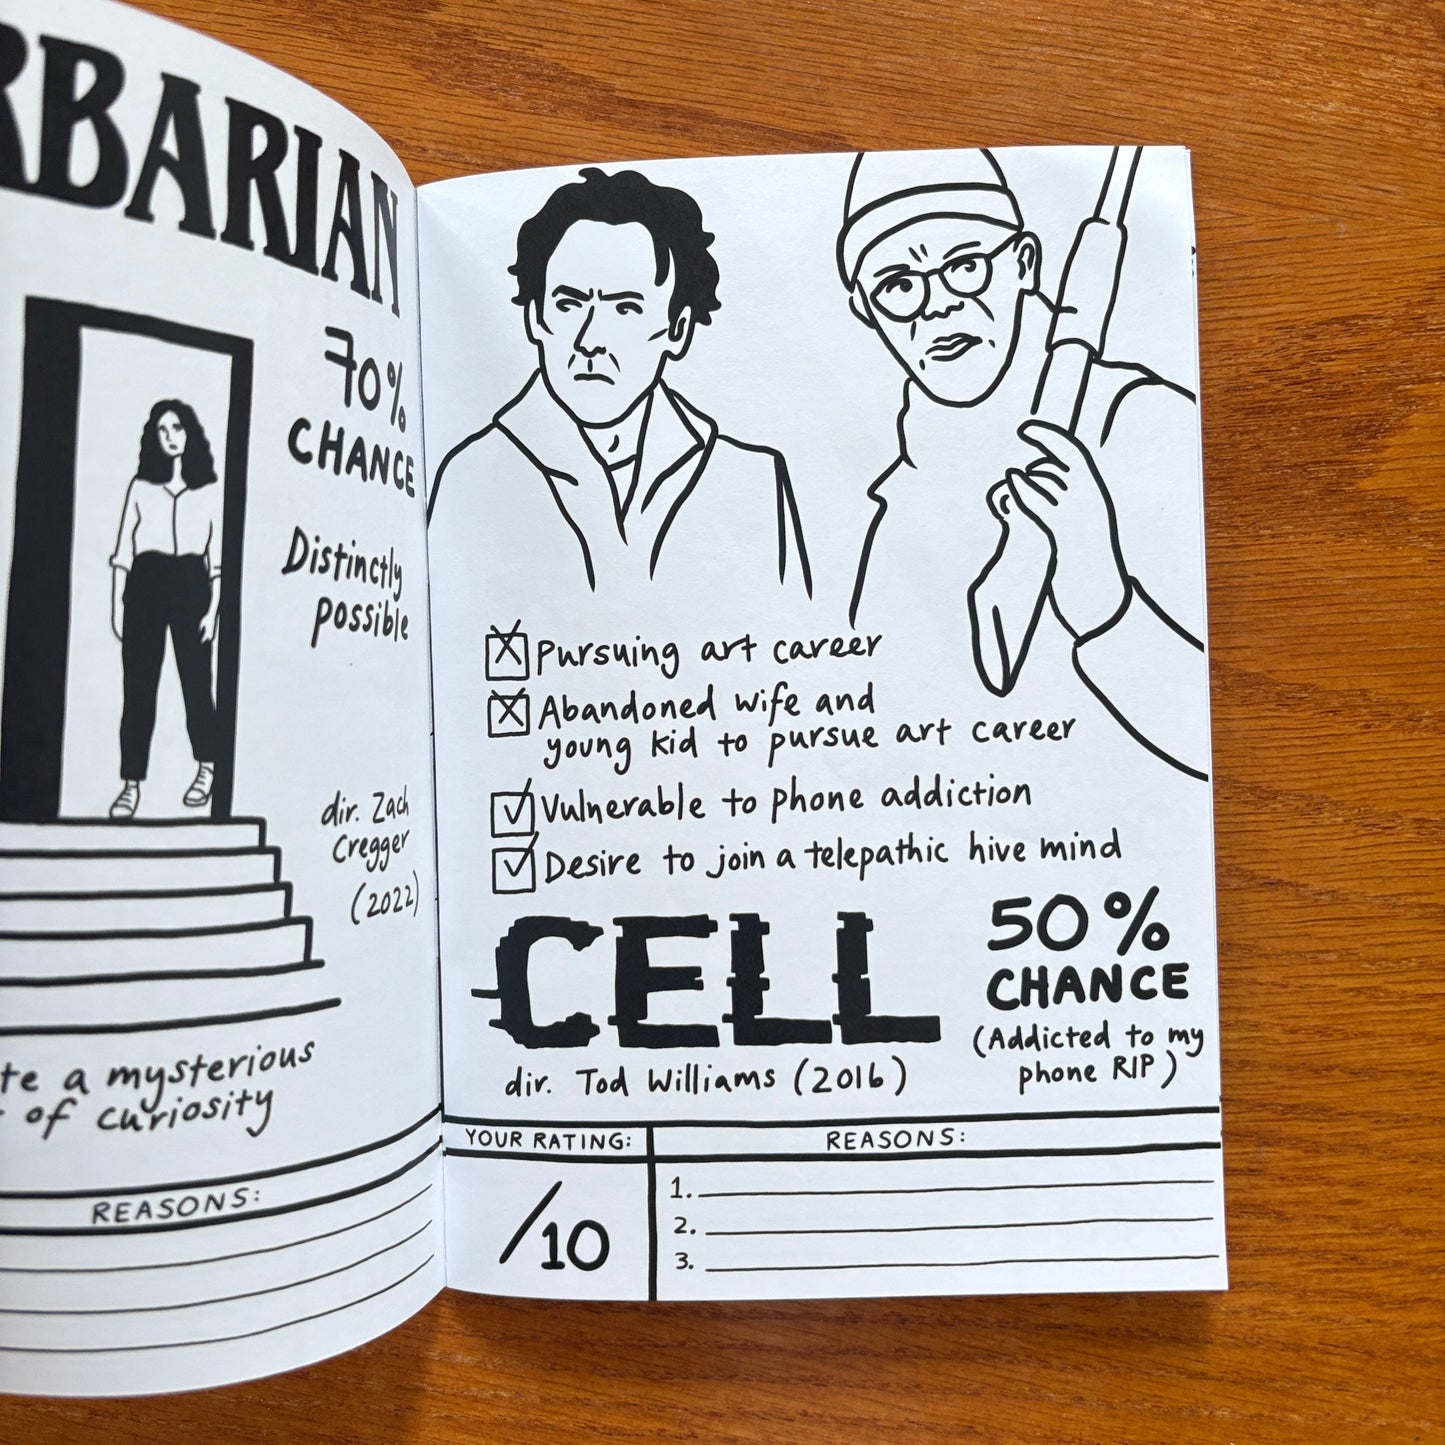 RBARIAN
70%
CHANCE
Distinctly
possible
dir. Zach
Cregger
(2022)
te a mysterious
of curiosity
REASONS:
Pursuing art career
Abandoned wife and
young kid to pursue art career
Vulnerable to phone addiction
Desire to join a telepathic hive mind
CELL
50%
CHANCE
(Addicted to my
phone RIP)
dir. Tod Williams (2016)
YOUR RATING:
REASONS:
/10
1.
2.
3.